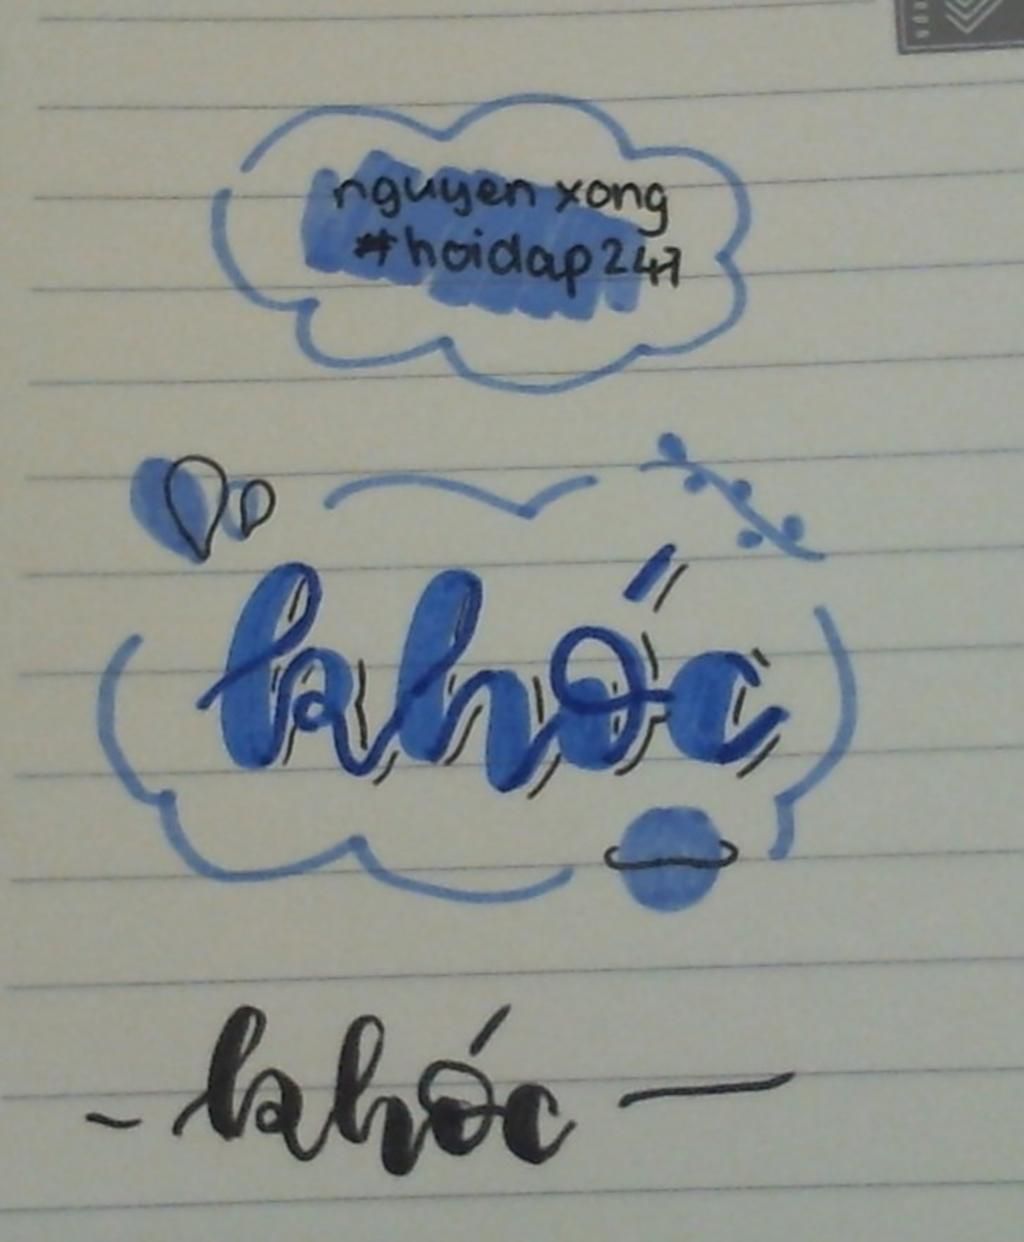 nguyen xong
#hoidap247
khóc
- khóc —